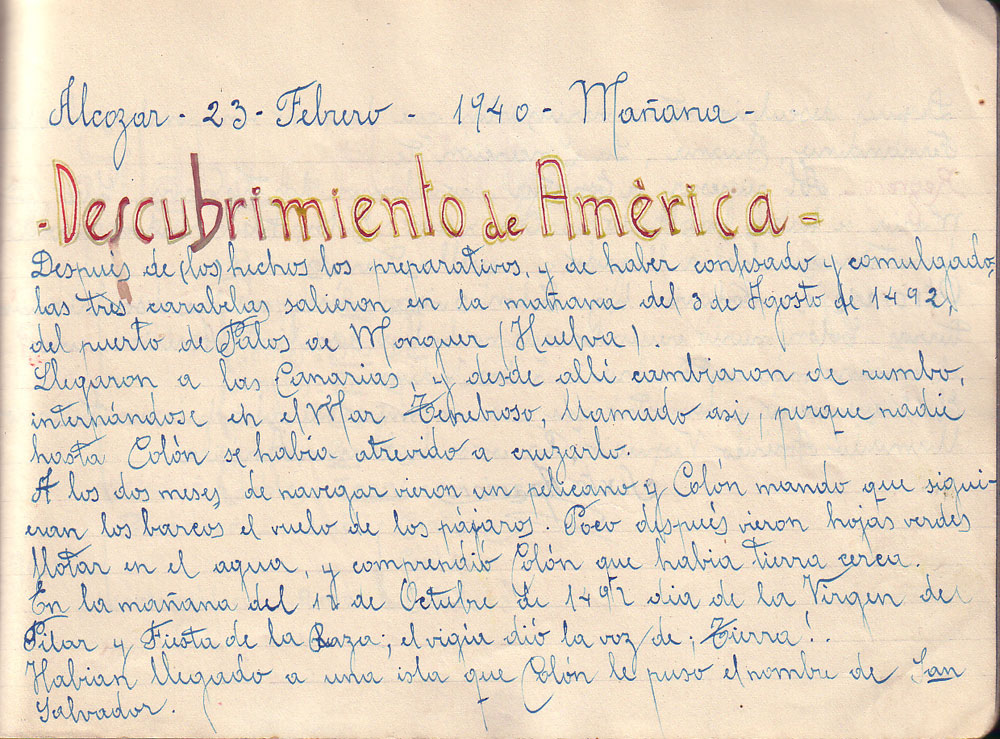 Alcozar - 23 - Febrero - 1940 - Mañana -
- Descubrimiento de América -
Después de (los) hechos los preparativos, y de haber confesado y comulgado,
las tres, carabelas salieron en la mañana del 3 de Agosto de 1492,
del puerto de Palos de Monguer (Huelva)
Llegaron a las Canarias, y desde allí cambiaron de rumbo,
internándose en el Mar Tenebroso, llamado asi, porque nadie
hasta Colón se había atrevido a cruzarlo.
A los dos meses, de navegar vieron un pelicano y Colón mando que sigui-
eran los barcos el vuelo de los pájaros. Poco después vieron hojas verdes
flotar en el agua, y comprendió Colón que habia tierra cerca.
En la mañana del 12 de Octubre de 1492 dia de la Virgen del
Pilar y Fiesta de la Raza; el vigía dió la voz de ¡Tierra!..
Habian llegado a una isla que Colón le puso el nombre de San
Salvador.